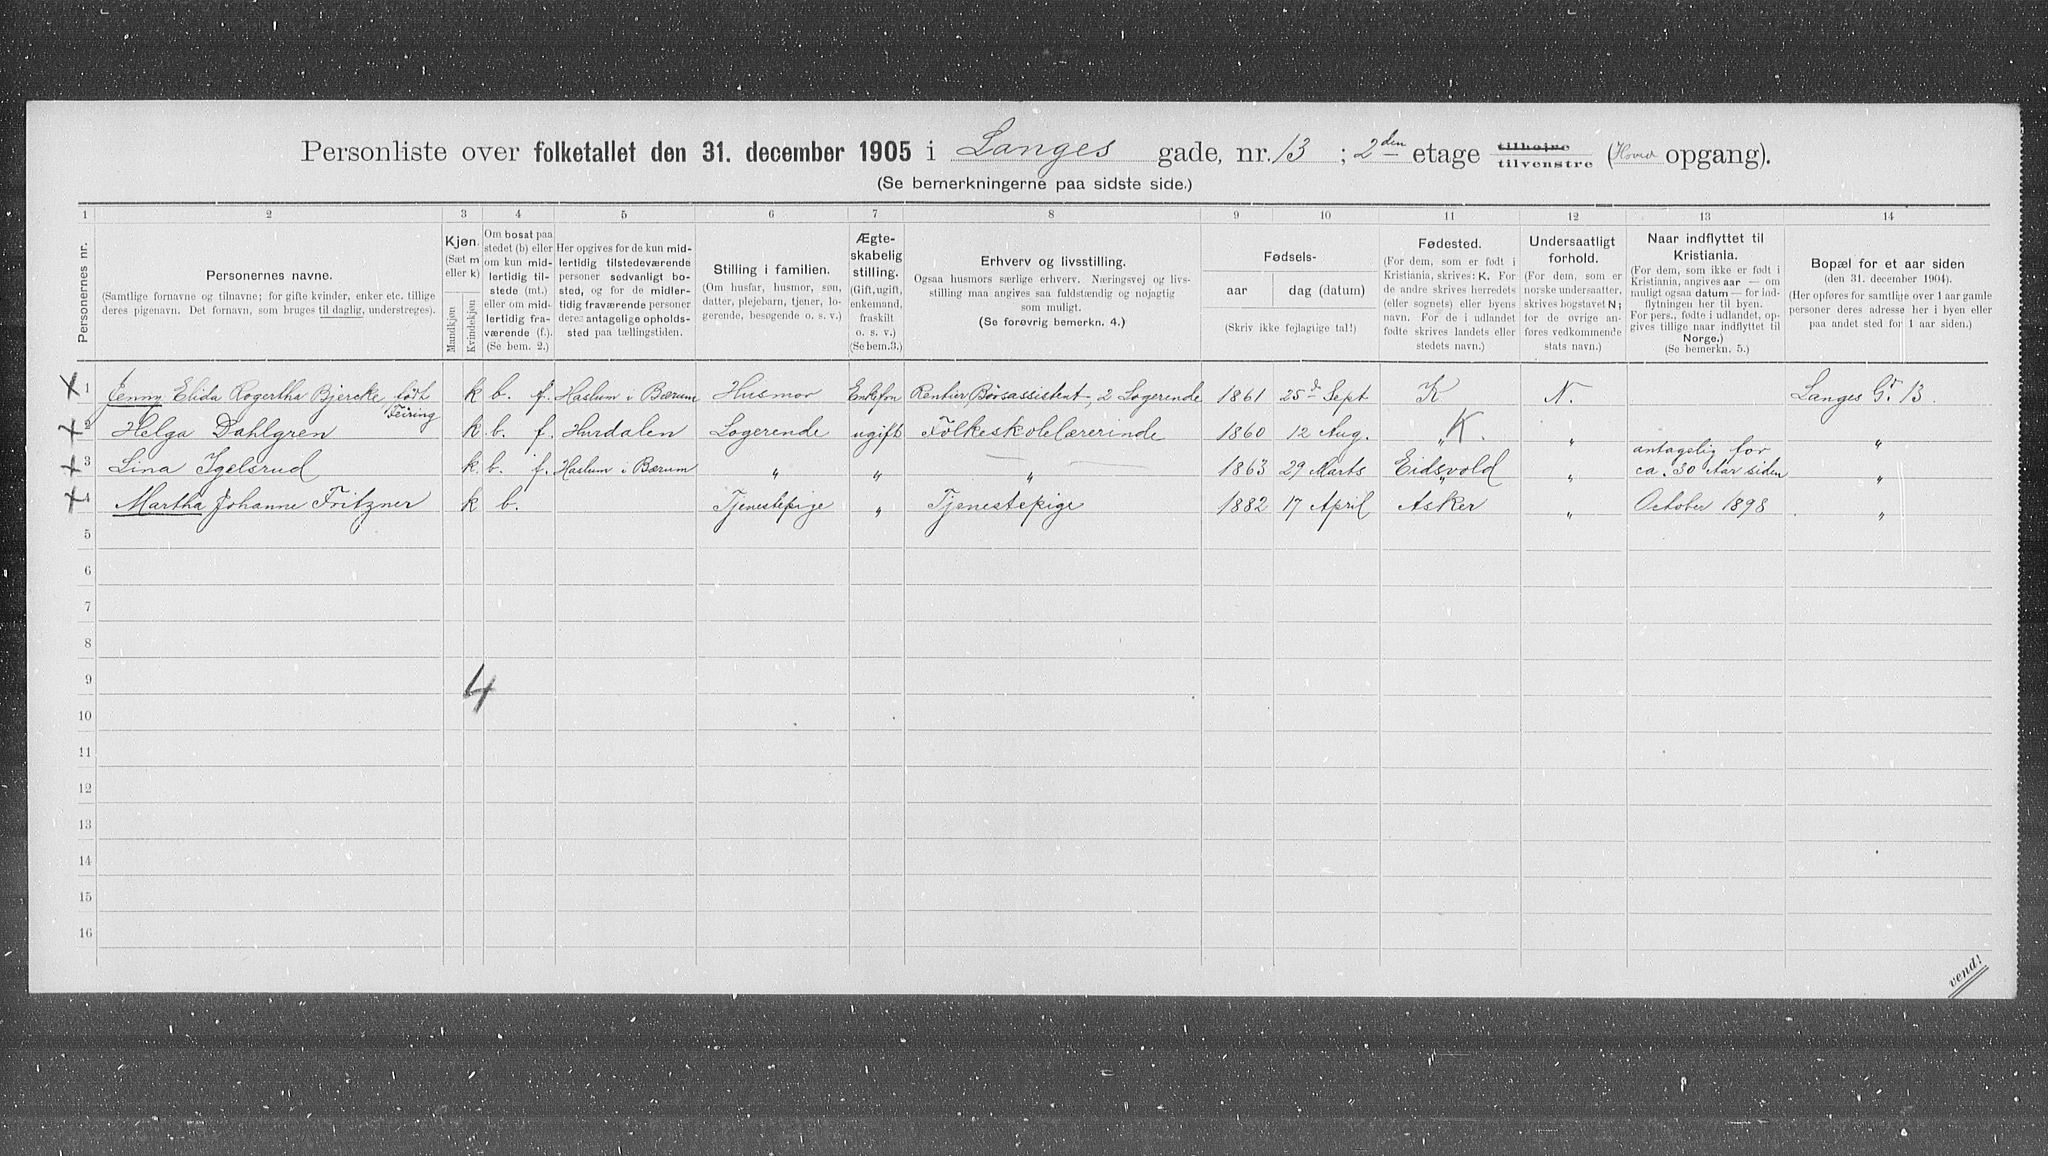 Personliste over folketallet den 31. december 1905 i Langes gade, nr. 13 ; 2den etage tilhøjre tilvenstre (Hoved opgang).
(Se bemerkningerne paa sidste side.)
1 2 3 4 5 6 7 8 9 10 11 12 13 14
Personernes nr.
Personernes navne.
(Samtlige fornavne og tilnavne; for gifte kvinder, enker etc. tillige
deres pigenavn. Det fornavn, som bruges til daglig, understreges).
Kjøn.
(Sæt m
eller k)
Mandkjøn
Kvindekjøn
Om bosat paa
stedet (b) eller
om kun mid-
lertidig til-
stede (mt.)
eller om mid-
lertidig fra-
værende (f.).
(Se bem. 2.)
Her opgives for de kun mid-
lertidig tilstedeværende
personer sedvanligt bo-
sted, og for de midler-
tidig fraværende personer
deres antagelige opholds-
sted paa tællingstiden.
Stilling i familien.
(Om husfar, husmor, søn,
datter, plejebarn, tjener, lo-
gerende, besøgende o. s. v.)
Ægte-
skabelig
stilling.
(Gift, ugift,
enkemand,
fraskilt
o. s. v.)
(Se bem.3.)
Erhverv og livsstilling.
Ogsaa husmors særlige erhverv. Næringsvej og livs-
stilling maa angives saa fuldstændig og nøjagtig
som muligt.
(Se forøvrig bemerkn. 4.)
Fødsels-
aar dag (datum)
(Skriv ikke fejlagtige tal!)
Fødested.
(For dem, som er født i
Kristiania, skrives: K. For
de andre skrives herredets
(eller sognets) eller byens
navn. For de i udlandet
fødte skrives landets eller
stedets navn.)
Undersaatligt
forhold.
(For dem, som er
norske undersaatter,
skrives bogstavet N;
for de øvrige an-
føres vedkommende
stats navn.)
Naar indflyttet til
Kristiania.
(For dem, som ikke er født i
Kristiania, angives aar — om
muligt ogsaa datum — for ind-
flytningen her til byen.
For pers., fødte i udlandet, op-
gives tillige naar indflyttet til
Norge.)
(Se bemerkn. 5.)
Bopæl for et aar siden
(den 31. december 1904).
(Her opføres for samtlige over 1 aar gamle
personer deres adresse her i byen eller
paa andet sted for 1 aar siden.)
1 Jenny Elida Rogertha Bjercke født Feiring k b. f. Haslum i Bærum Husmor Enkefru Rentier, Børsassistent, 2 Logerende 1861 25d Sept K N. Langes Gt. 13.
2 Helga Dahlgren k. b. f. Hurdalen Logerende ugift Folkeskolelærerinde 1860 12 Aug. K. " "
3 Lina Igelsrud k. b. f. Haslum i Bærum " " " 1863 29 Marts Eidsvold " antagelig for ca. 30 Aar siden "
4 Martha Johanne Fritzner k b. Tjenestepige " Tjenestepige 1882 17 April Asker " October 1898 "
5
6
7
8
9
4
10
11
12
13
14
15
16
vend!